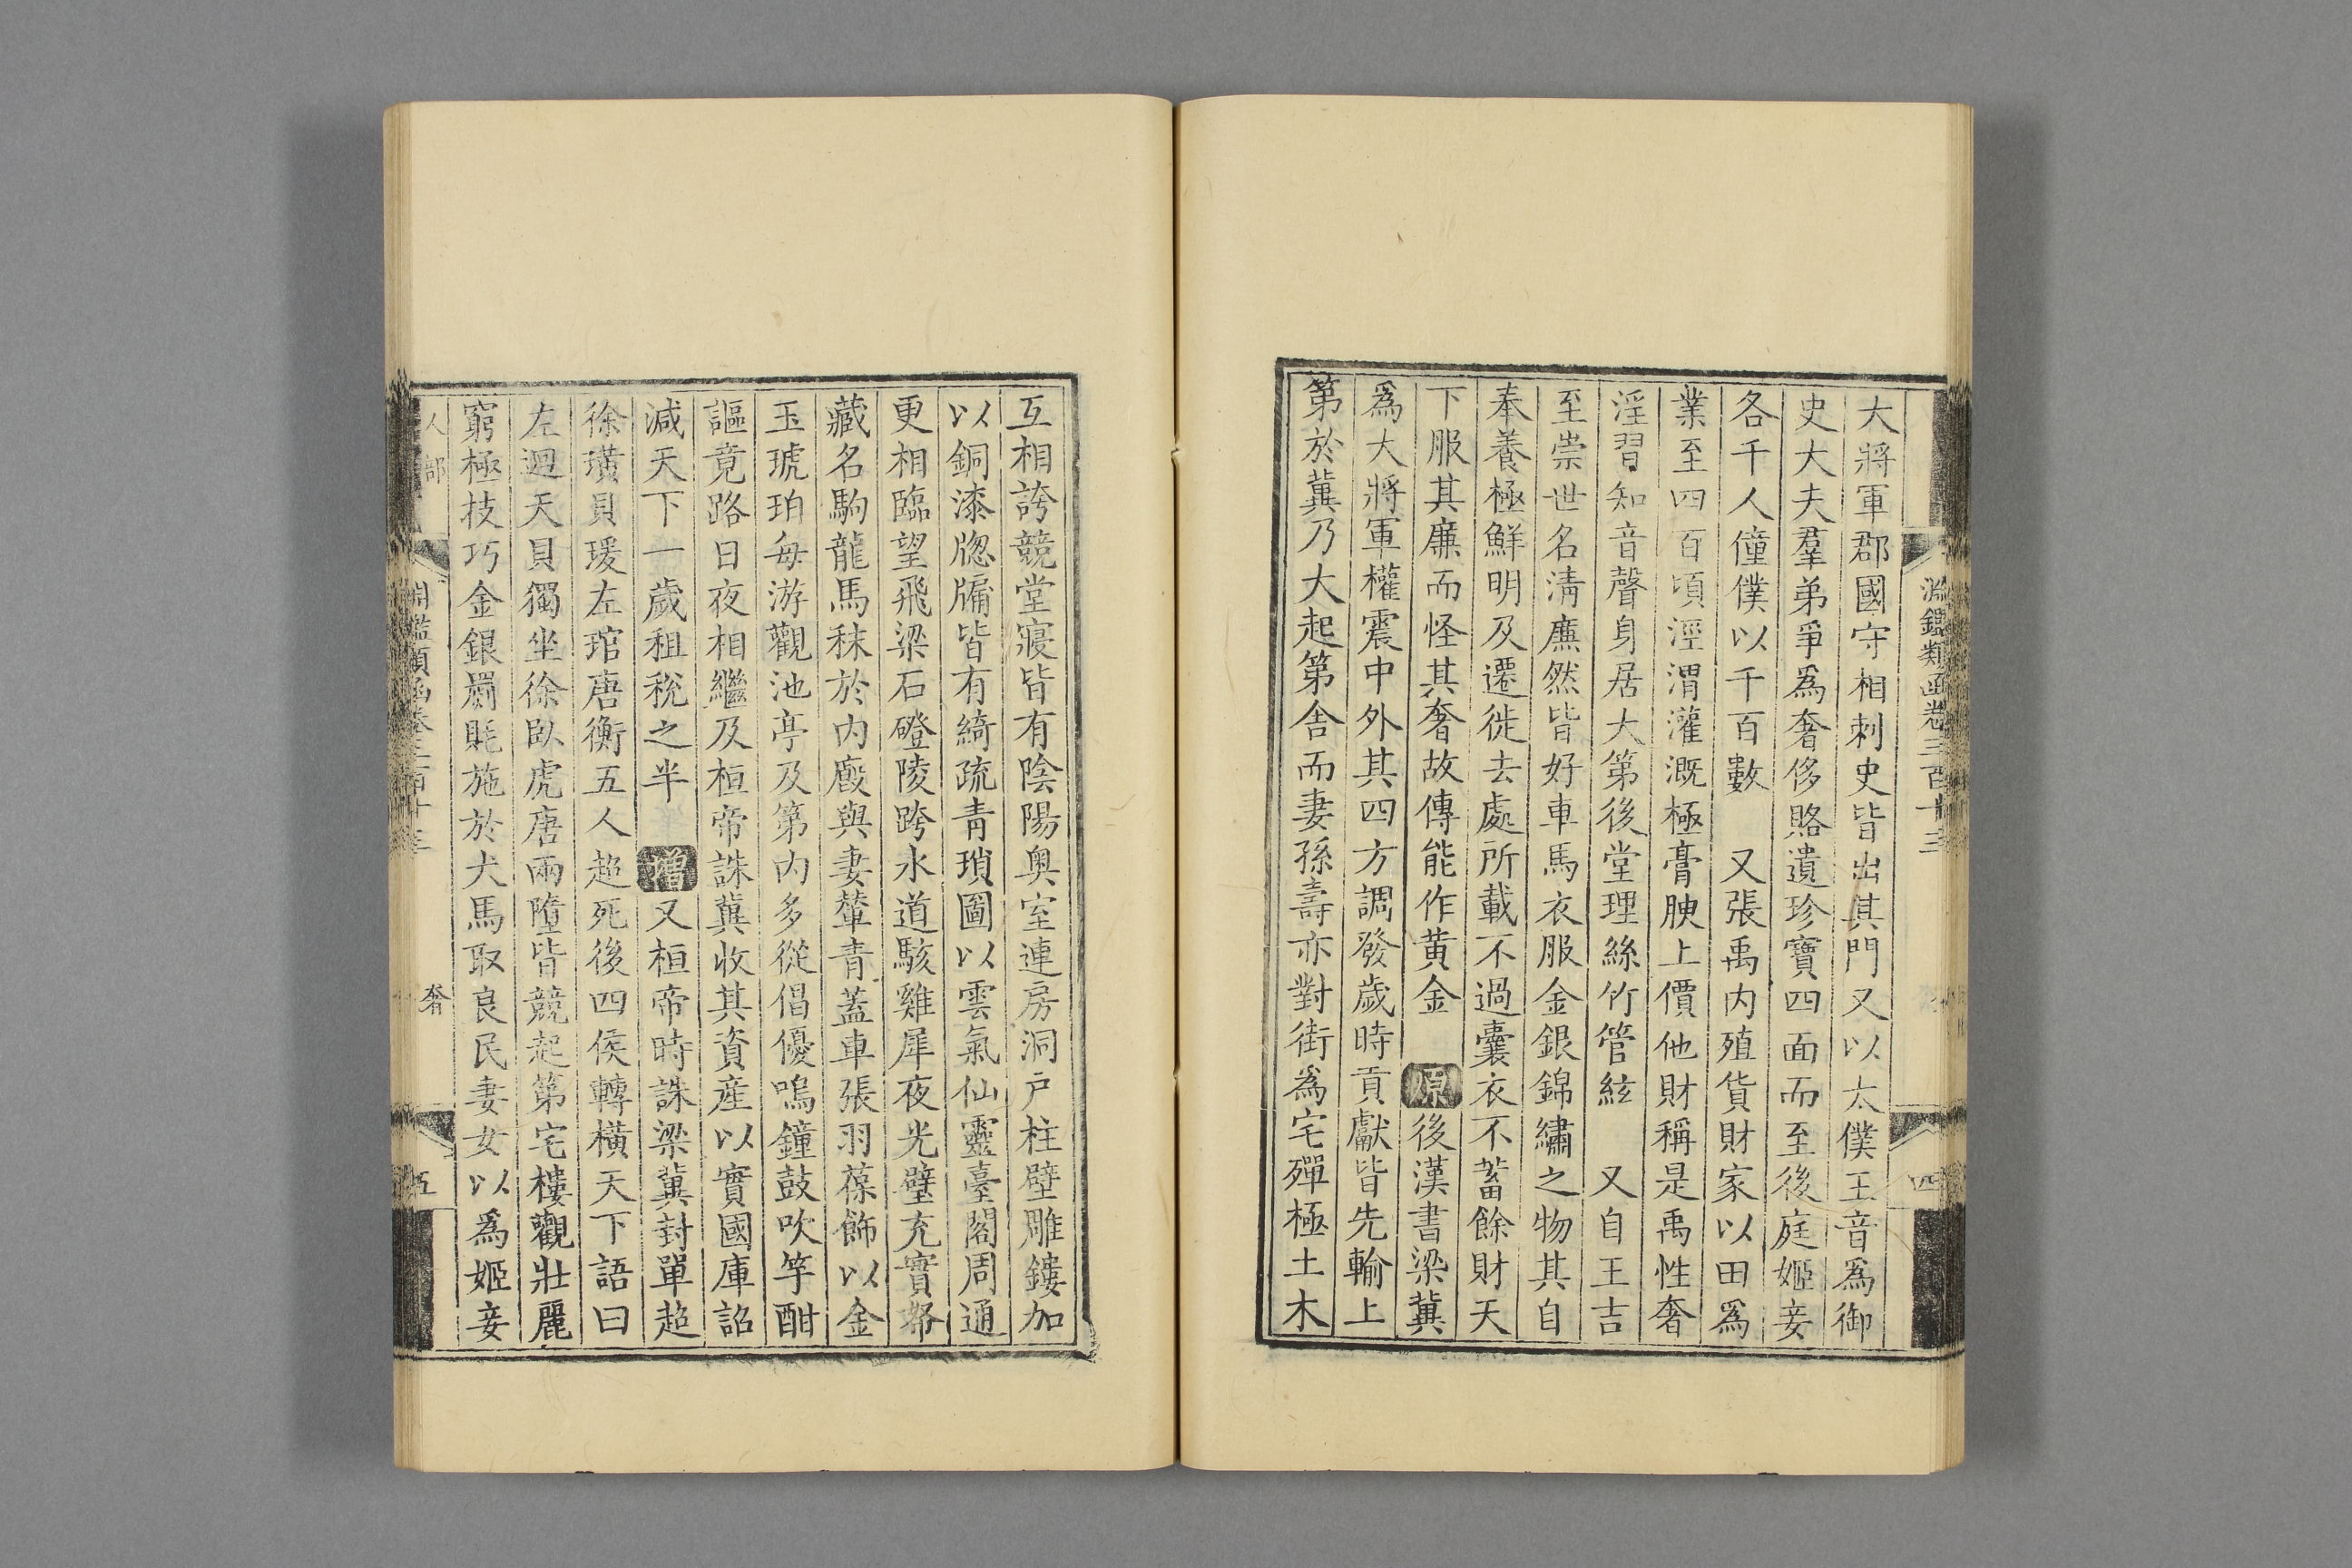 淵鑑類函卷三百十三
四
大將軍郡國守相刺史皆出其門又以太僕王音爲御
史大夫羣弟爭爲奢侈賂遺珍寶四面而至後庭姬妾
各千人僮僕以千百數　又張禹内殖貨財家以田爲
業至四百頃涇渭灌溉極膏腴上價他財稱是禹性奢
淫習知音聲身居大第後堂理絲竹管絃　又自王吉
至崇世名淸廉然皆好車馬衣服金銀錦繡之物其自
奉養極鮮明及遷徙去處所載不過囊衣不蓄餘財天
下服其廉而怪其奢故傳能作黄金　原後漢書梁冀
爲大將軍權震中外其四方調發歲時貢獻皆先輸上
第於冀乃大起第舍而妻孫壽亦對街爲宅殫極土木
互相誇競堂寢皆有陰陽奥室連房洞户柱壁雕鏤加
以銅漆牕牖皆有綺疏青瑣圖以雲氣仙靈臺閣周通
更相臨望飛梁石磴陵跨水道駭雞犀夜光璧充實帑
藏名駒龍馬秣於内廄與妻輦青蓋車張羽葆飾以金
玉琥珀每游觀池亭及第内多從倡優鳴鐘鼓吹竽酣
謳竟路日夜相繼及桓帝誅冀收其資産以實國庫詔
減天下一歲租稅之半　增又桓帝時誅梁冀封單超
徐璜具瑗左琯唐衡五人超死後四侯轉橫天下語曰
左迴天具獨坐徐臥虎唐兩墮皆競起第宅樓觀壯麗
窮極技巧金銀罽毦施於犬馬取良民妻女以爲姬妾
人部
淵鑑類函卷三百十三
奢
五